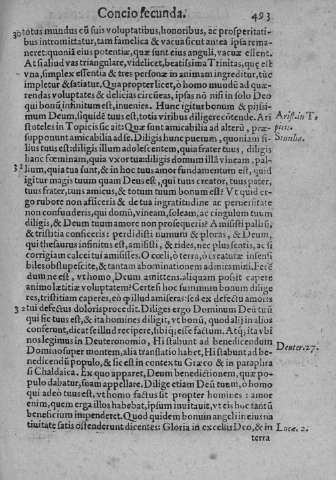 Concio secunda. 493
30 totus mundus cũ suis voluptatibus, honoribus, ac prosperitati-
bus intromittatur, tam famelica & vacua sicut antea ipsa rema-
neret: quoniã eius potentiæ, quæ sunt eius anguli, vacuæ essent.
At si aliud vas triangulare, videlicet, beatissima Trinitas, quę est
vna, simplex essentia & tres personæ in animam ingreditur, tũc
impletur & satiatur. Quapropter licet, ò homo mundè ad quæ-
rendas voluptates & delicias circũeas, ipsas nõ nisi in solo Deo
qui bonũ infinitum est, inuenies. Hunc igitur bonum & pijssi-
mum Deum, siquidē tuus est, totis viribus diligere cõtende. Ari
stoteles in Topicis sic ait: Quæ sunt amicabilia ad alterũ, præ- Arist. in To
supponunt amicabilia ad se. Diligis hunc puerum, quoniam fi- pica.
lius tuus est: diligis illum adolescentem, quia frater tuus, diligis Similia.
hanc fœminam, quia vxor tua: diligis domum illã vineam, pal-
31 lium, quia tua sunt, & in hoc tuus amor fundamentum est, quid
igitur magis tuum quam Deus est, qui tuus creator, tuus pater,
tuus frater, tuus amicus, & totum tuum bonum est? Vt quid er-
go rubore non afficeris & de tua ingratitudine ac peruersitate
non confunderis, qui domũ, vineam, soleam, ac cingulum tuum
diligis, & Deum tuum amore non prosequeris? Amisisti palliũ,
& tristitia conficeris: perdidisti nummũ & ploras, & Deum,
qui thesaurus infinitus est, amisisti, & rides, nec plus sentis, ac si
corrigiam calcei tui amisisses. O cœli, ò terra, ò creaturæ insensi
biles obstupescite, & tantam abhominationem admiramini. Eccē
dum ne est, vt homo, Deum amittens, aliquam possit capere
animo lætitiæ voluptatem? Certe si hoc summum bonum dilige
res, tristitiam caperes, eò quòd illud amiseras: sed ex defectu amoris
32 tui defectus doloris procedit. Diliges ergo Dominum Deũ tuũ
qui sic tuus est, & ita homines diligit, vt bonũ, quod alij in alios
conferunt, dicat se illud recipere, sibiq; esse factum. Atq; ita vbi
nos legimus in Deuteronomio, Hi stabunt ad benedicendum
Domino super montem, alia translatio habet, Hi stabunt ad be- Deuter. 27.
nedicendũ populo, & sic est in contextu Græco & in paraphra
si Chaldaica. Ex quo apparet, Deum benedictionem, quæ po-
pulo dabatur, suam appellare. Dilige etiam Deũ tuum, ò homo
qui adeò tuus est, vt homo factus sit propter homines: amor
enim, quem erga illos habebat, ipsum inuitauit, vt eis hoc tantũ
beneficium impenderet. Quod quidem bonum angeli in eius na
tiuitate satis ostenderunt dicentes: Gloria in excelsis Deo, & in Lucæ. 2.
terra